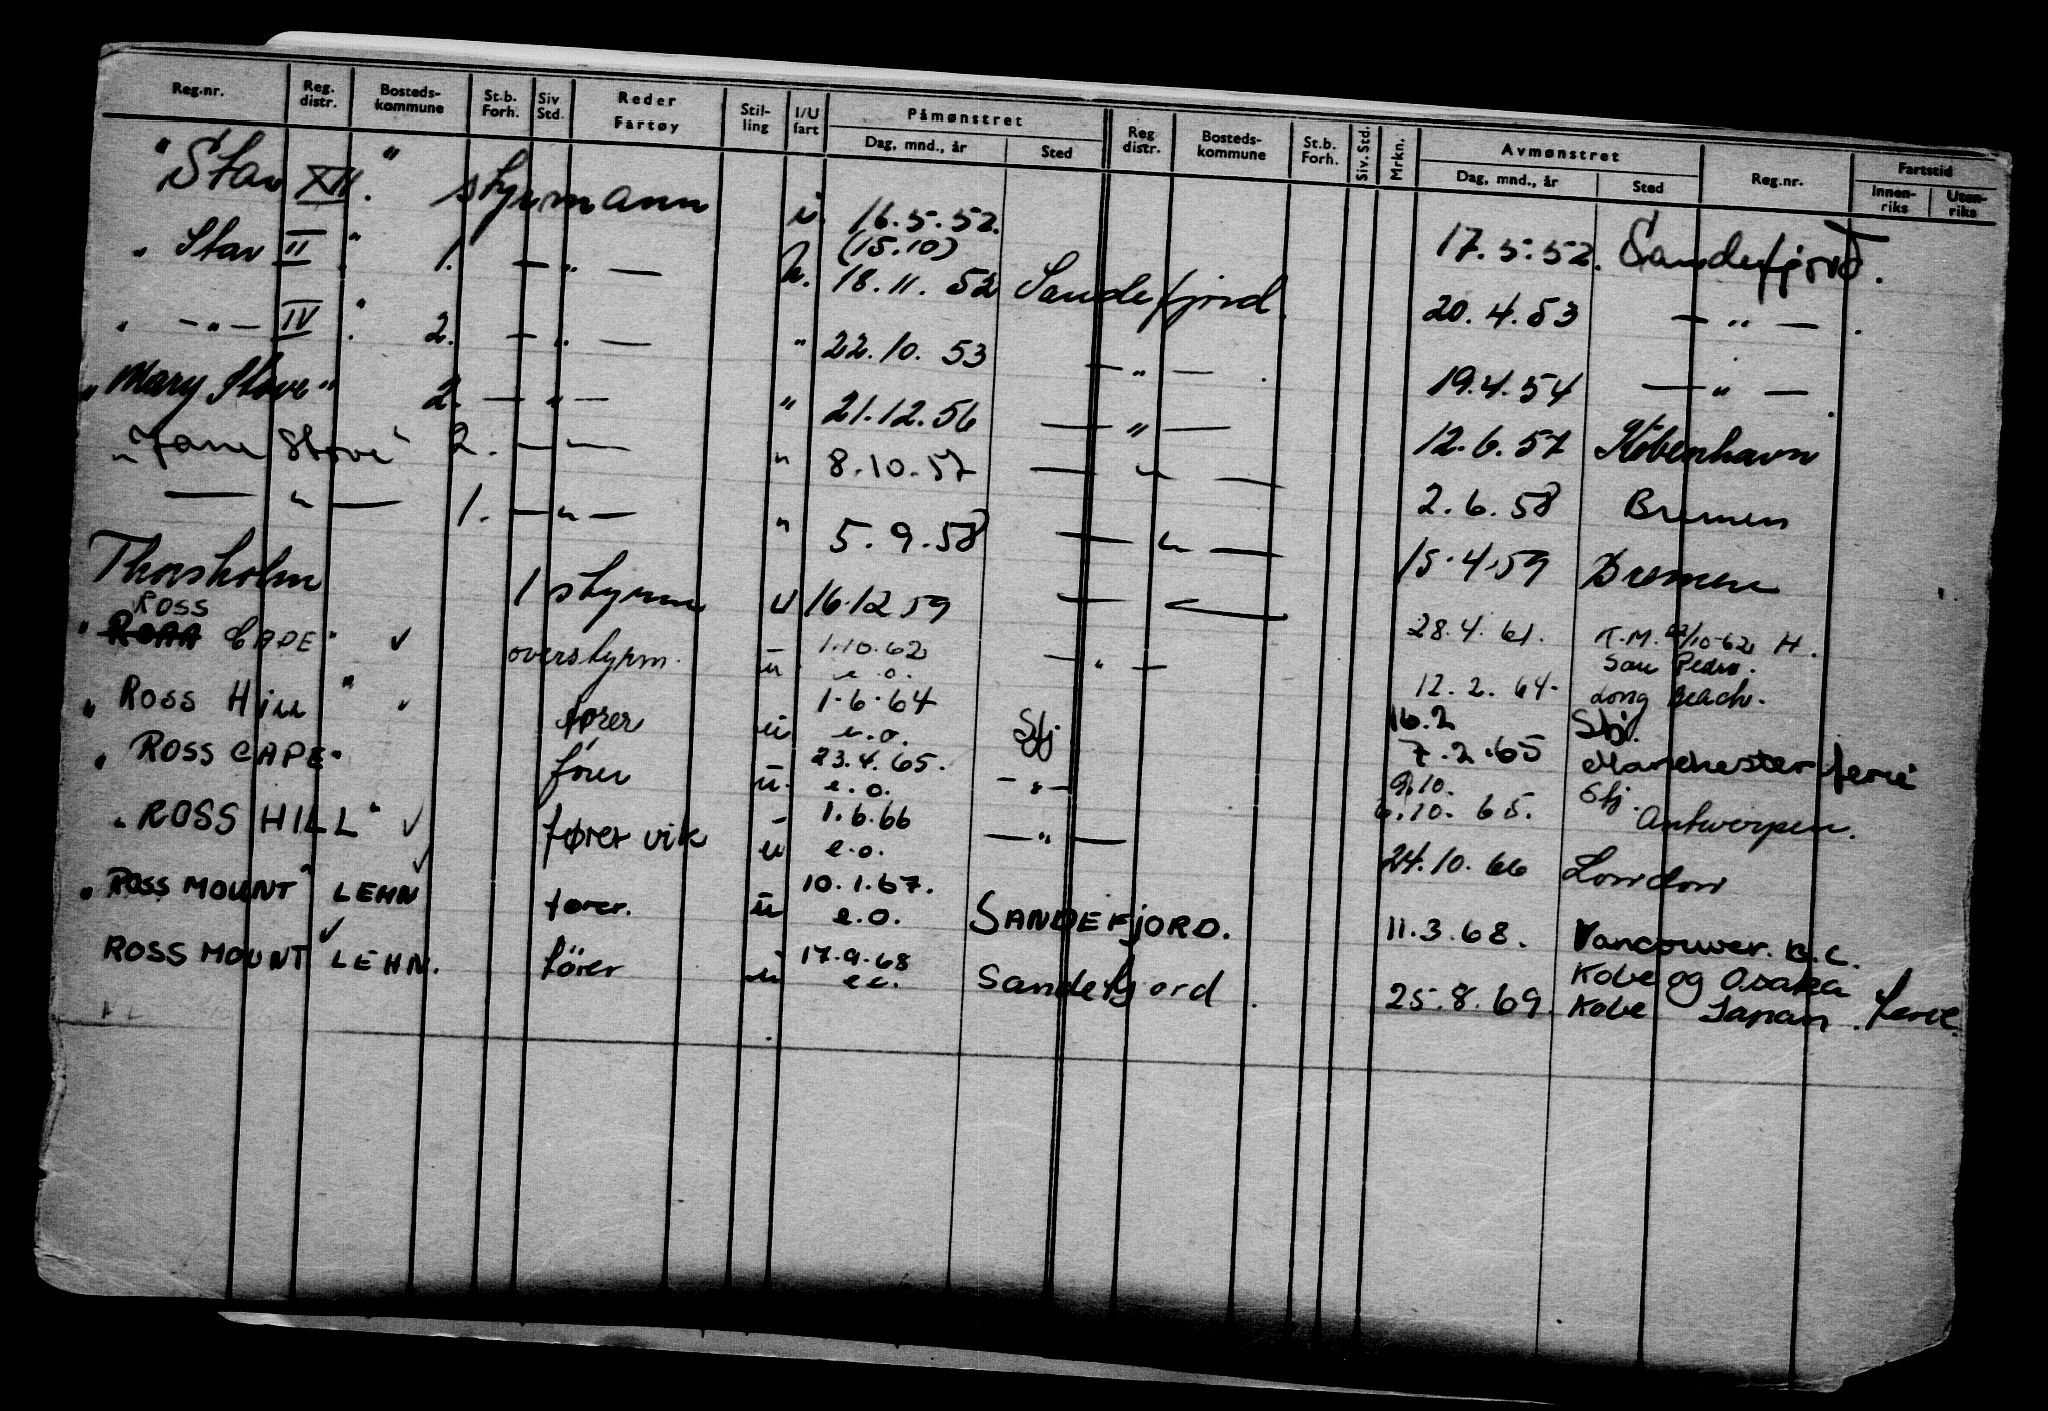 Reg.nr. Reg. distr. Bosteds- kommune St.b. Forh. Siv Std. Reder Fartøy Stil- ling I/U fart Påmønstret Dag, mnd., år Sted Reg distr. Bosteds- kommune St.b. Forh. Siv. Std. Mrkn. Avmønstret Dag, mnd., år Sted Reg.nr. Fartstid Innen- riks Uten- riks
"Stav XIII." styrmann u. 16.5.52. 17.5.52. Sandefjord.
(15.10)
" Stav II " 1. — " — u. 18.11.52 Sandefjord. 20.4.53 — " — .
" — " — IV " 2. — " — " 22.10.53 — " — . 19.4.54 — " — .
"Mary Stove" 2. — " — " 21.12.56 — " — 12.6.57 København
"Jane Stove" 2. — " — " 8.10.57 — " — 2.6.58 Bremen
— " — 1. — " — " 5.9.58 — " — 15.4.59 Bremen
Thorsholm 1 styrm u 16.12.59 — " — 28.4.61. K.M. /10-62 H.
ROSS
" CAPE" ✓ overstyrm. u. 1.10.62 e.o. — " — San Pedro.
12.2.64. Long Beach.
" ROSS Hill " ✓ fører u 1.6.64 e.o. Sfj 16.2 Sfj.
7.2.65 Manchester ferie
" ROSS CAPE" fører u. 23.4.65. e.o. — " — 9.10. Sfj.
6.10.65. Antwerpen.
"ROSS HILL" ✓ fører vik u 1.6.66 e.o. — " — 24.10.66 London
" ROSS MOUNT" LEHN ✓ fører. u 10.1.67. e.o. SANDEFJORD. 11.3.68. Vancouver. B.C.
ROSS MOUNT LEHN. ✓ fører u 17.9.68 e.o. Sandefjord . Kobe og Osaka
25.8.69. Kobe Japan . ferie.